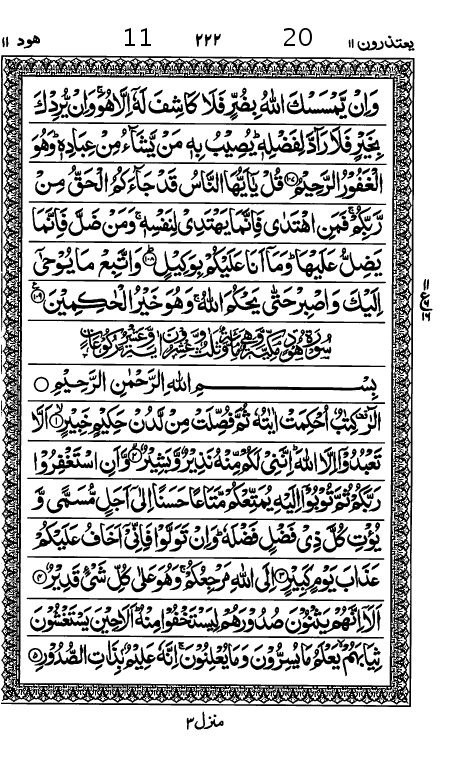 یعتذرون ۱۱ 20 ۲۲۲ 11 ھود ۱۱
وَاِنْ يَّمْسَسْكَ اللّٰهُ بِضُرٍّ فَلَا كَاشِفَ لَهٗۤ اِلَّا هُوَ ۚ وَاِنْ يُّرِدْكَ
بِخَيْرٍ فَلَا رَآدَّ لِفَضْلِهٖ ؕ يُصِيْبُ بِهٖ مَنْ يَّشَآءُ مِنْ عِبَادِهٖ ؕ وَهُوَ
الْغَفُوْرُ الرَّحِيْمُ ۝۱۰۷ قُلْ يٰۤاَيُّهَا النَّاسُ قَدْ جَآءَكُمُ الْحَقُّ مِنْ
رَّبِّكُمْ ۚ فَمَنِ اهْتَدٰى فَاِنَّمَا يَهْتَدِىْ لِنَفْسِهٖ ۚ وَمَنْ ضَلَّ فَاِنَّمَا
يَضِلُّ عَلَيْهَا ؕ وَمَاۤ اَنَا عَلَيْكُمْ بِوَكِيْلٍ ۝۱۰۸ وَاتَّبِعْ مَا يُوْحٰۤى
اِلَيْكَ وَاصْبِرْ حَتّٰى يَحْكُمَ اللّٰهُ ۚ وَهُوَ خَيْرُ الْحٰكِمِيْنَ ۝۱۰۹
سُوْرَةُ هُوْدٍ مَّكِّيَّةٌ وَّهِىَ مِائَةٌ وَّثَلٰثٌ وَّعِشْرُوْنَ اٰيَةً وَّعَشْرُ رُكُوْعَاتٍ
بِسْمِ اللّٰهِ الرَّحْمٰنِ الرَّحِيْمِ ۝
الٓرٰ ۟ كِتٰبٌ اُحْكِمَتْ اٰيٰتُهٗ ثُمَّ فُصِّلَتْ مِنْ لَّدُنْ حَكِيْمٍ خَبِيْرٍ ۝۱ اَلَّا
تَعْبُدُوْۤا اِلَّا اللّٰهَ ؕ اِنَّنِىْ لَكُمْ مِّنْهُ نَذِيْرٌ وَّبَشِيْرٌ ۝۲ وَّاَنِ اسْتَغْفِرُوْا
رَبَّكُمْ ثُمَّ تُوْبُوْۤا اِلَيْهِ يُمَتِّعْكُمْ مَّتَاعًا حَسَنًا اِلٰۤى اَجَلٍ مُّسَمًّى وَّ
يُؤْتِ كُلَّ ذِىْ فَضْلٍ فَضْلَهٗ ؕ وَاِنْ تَوَلَّوْا فَاِنِّىْۤ اَخَافُ عَلَيْكُمْ
عَذَابَ يَوْمٍ كَبِيْرٍ ۝۳ اِلَى اللّٰهِ مَرْجِعُكُمْ ۚ وَهُوَ عَلٰى كُلِّ شَىْءٍ قَدِيْرٌ ۝۴
اَلَاۤ اِنَّهُمْ يَثْنُوْنَ صُدُوْرَهُمْ لِيَسْتَخْفُوْا مِنْهُ ؕ اَلَا حِيْنَ يَسْتَغْشُوْنَ
ثِيَابَهُمْ ۙ يَعْلَمُ مَا يُسِرُّوْنَ وَمَا يُعْلِنُوْنَ ۚ اِنَّهٗ عَلِيْمٌۢ بِذَاتِ الصُّدُوْرِ ۝۵
منزل ۳